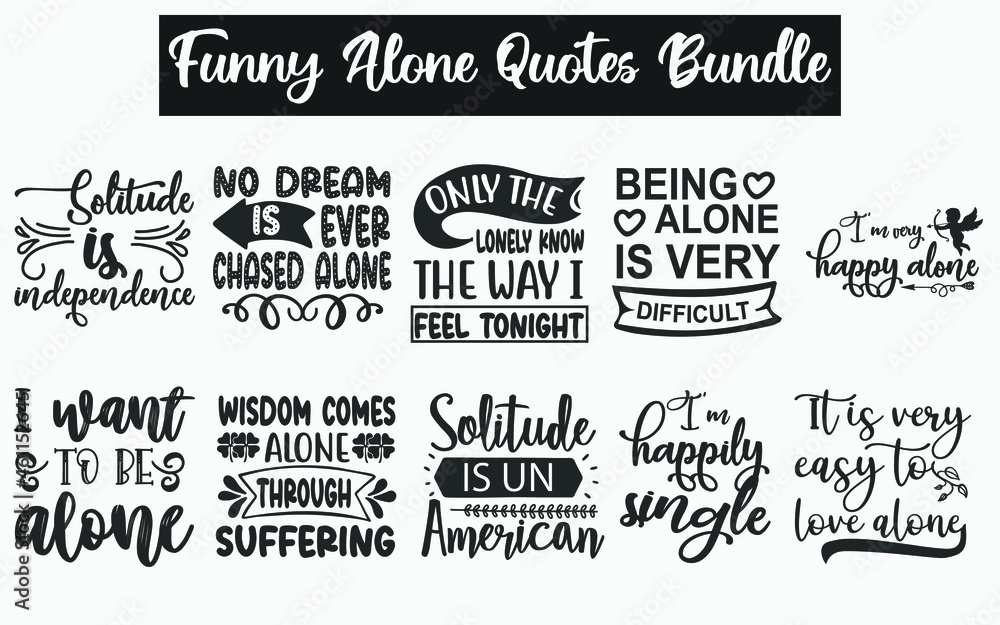 Funny Alone Quotes Bundle
Solitude
is
independence
NO DREAM
IS EVER
CHASED ALONE
ONLY THE
LONELY KNOW
THE WAY I
FEEL TONIGHT
BEING
ALONE
IS VERY
DIFFICULT
I'm very
happy alone
want
TO BE
alone
WISDOM COMES
ALONE
THROUGH
SUFFERING
Solitude
IS UN
American
I'm
happily
single
It is very
easy to
love alone
Adobe Stock